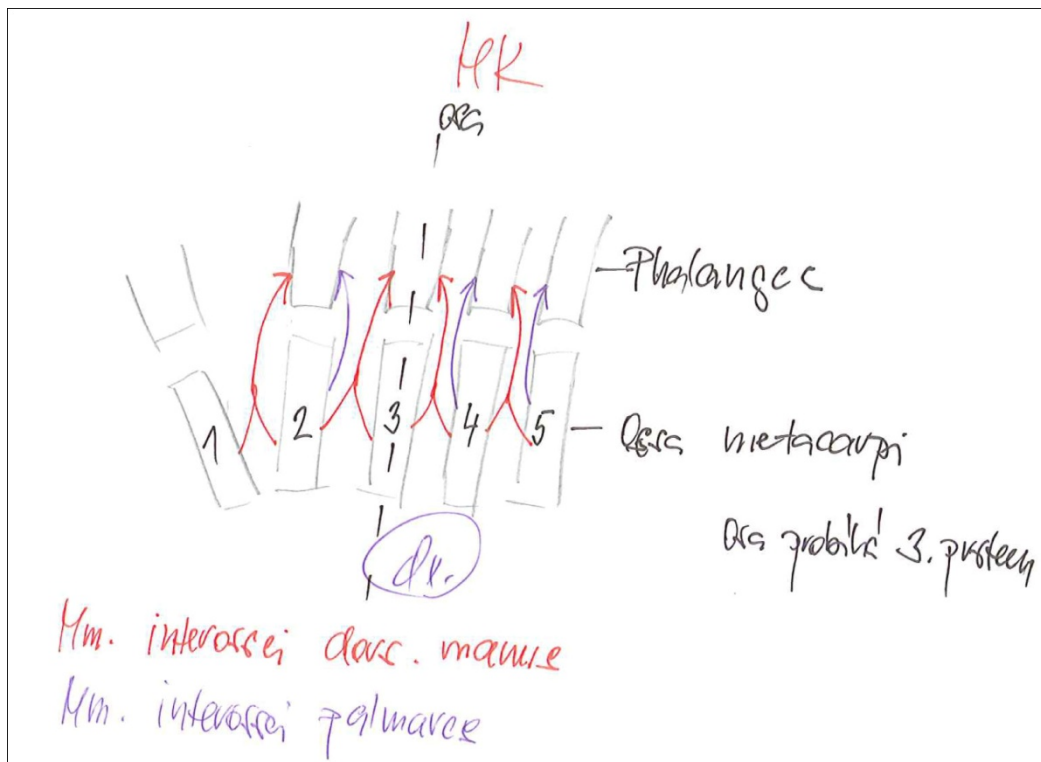 HK
osa
Phalanges
1 2 3 4 5
Ossa metacarpi
osa probíhá 3. prstem
dx.
Mm. interossei dors. manus
Mm. interossei palmares